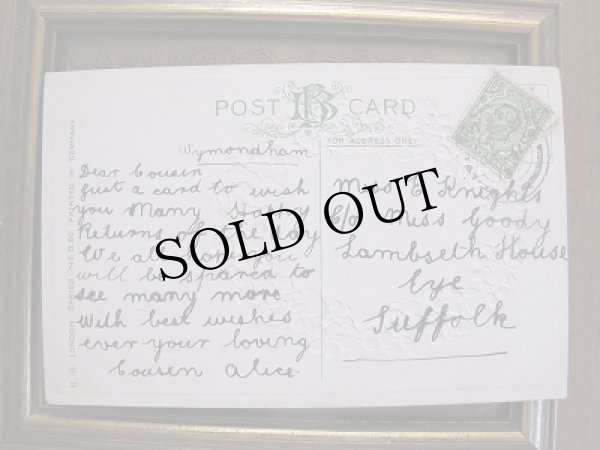 POST CARD
FOR ADDRESS ONLY
Wymondham
Dear Cousin
Just a card to wish
you Many Happy
Returns of the day
We all hope you
will be spared to
see many more.
With best wishes
ever your loving
Cousin Alice.
Miss E Knights
C/o Miss Goody
Lambseth House
Eye
Suffolk
SOLD OUT
B. B. LONDON. SERIES. PRINTED IN GERMANY